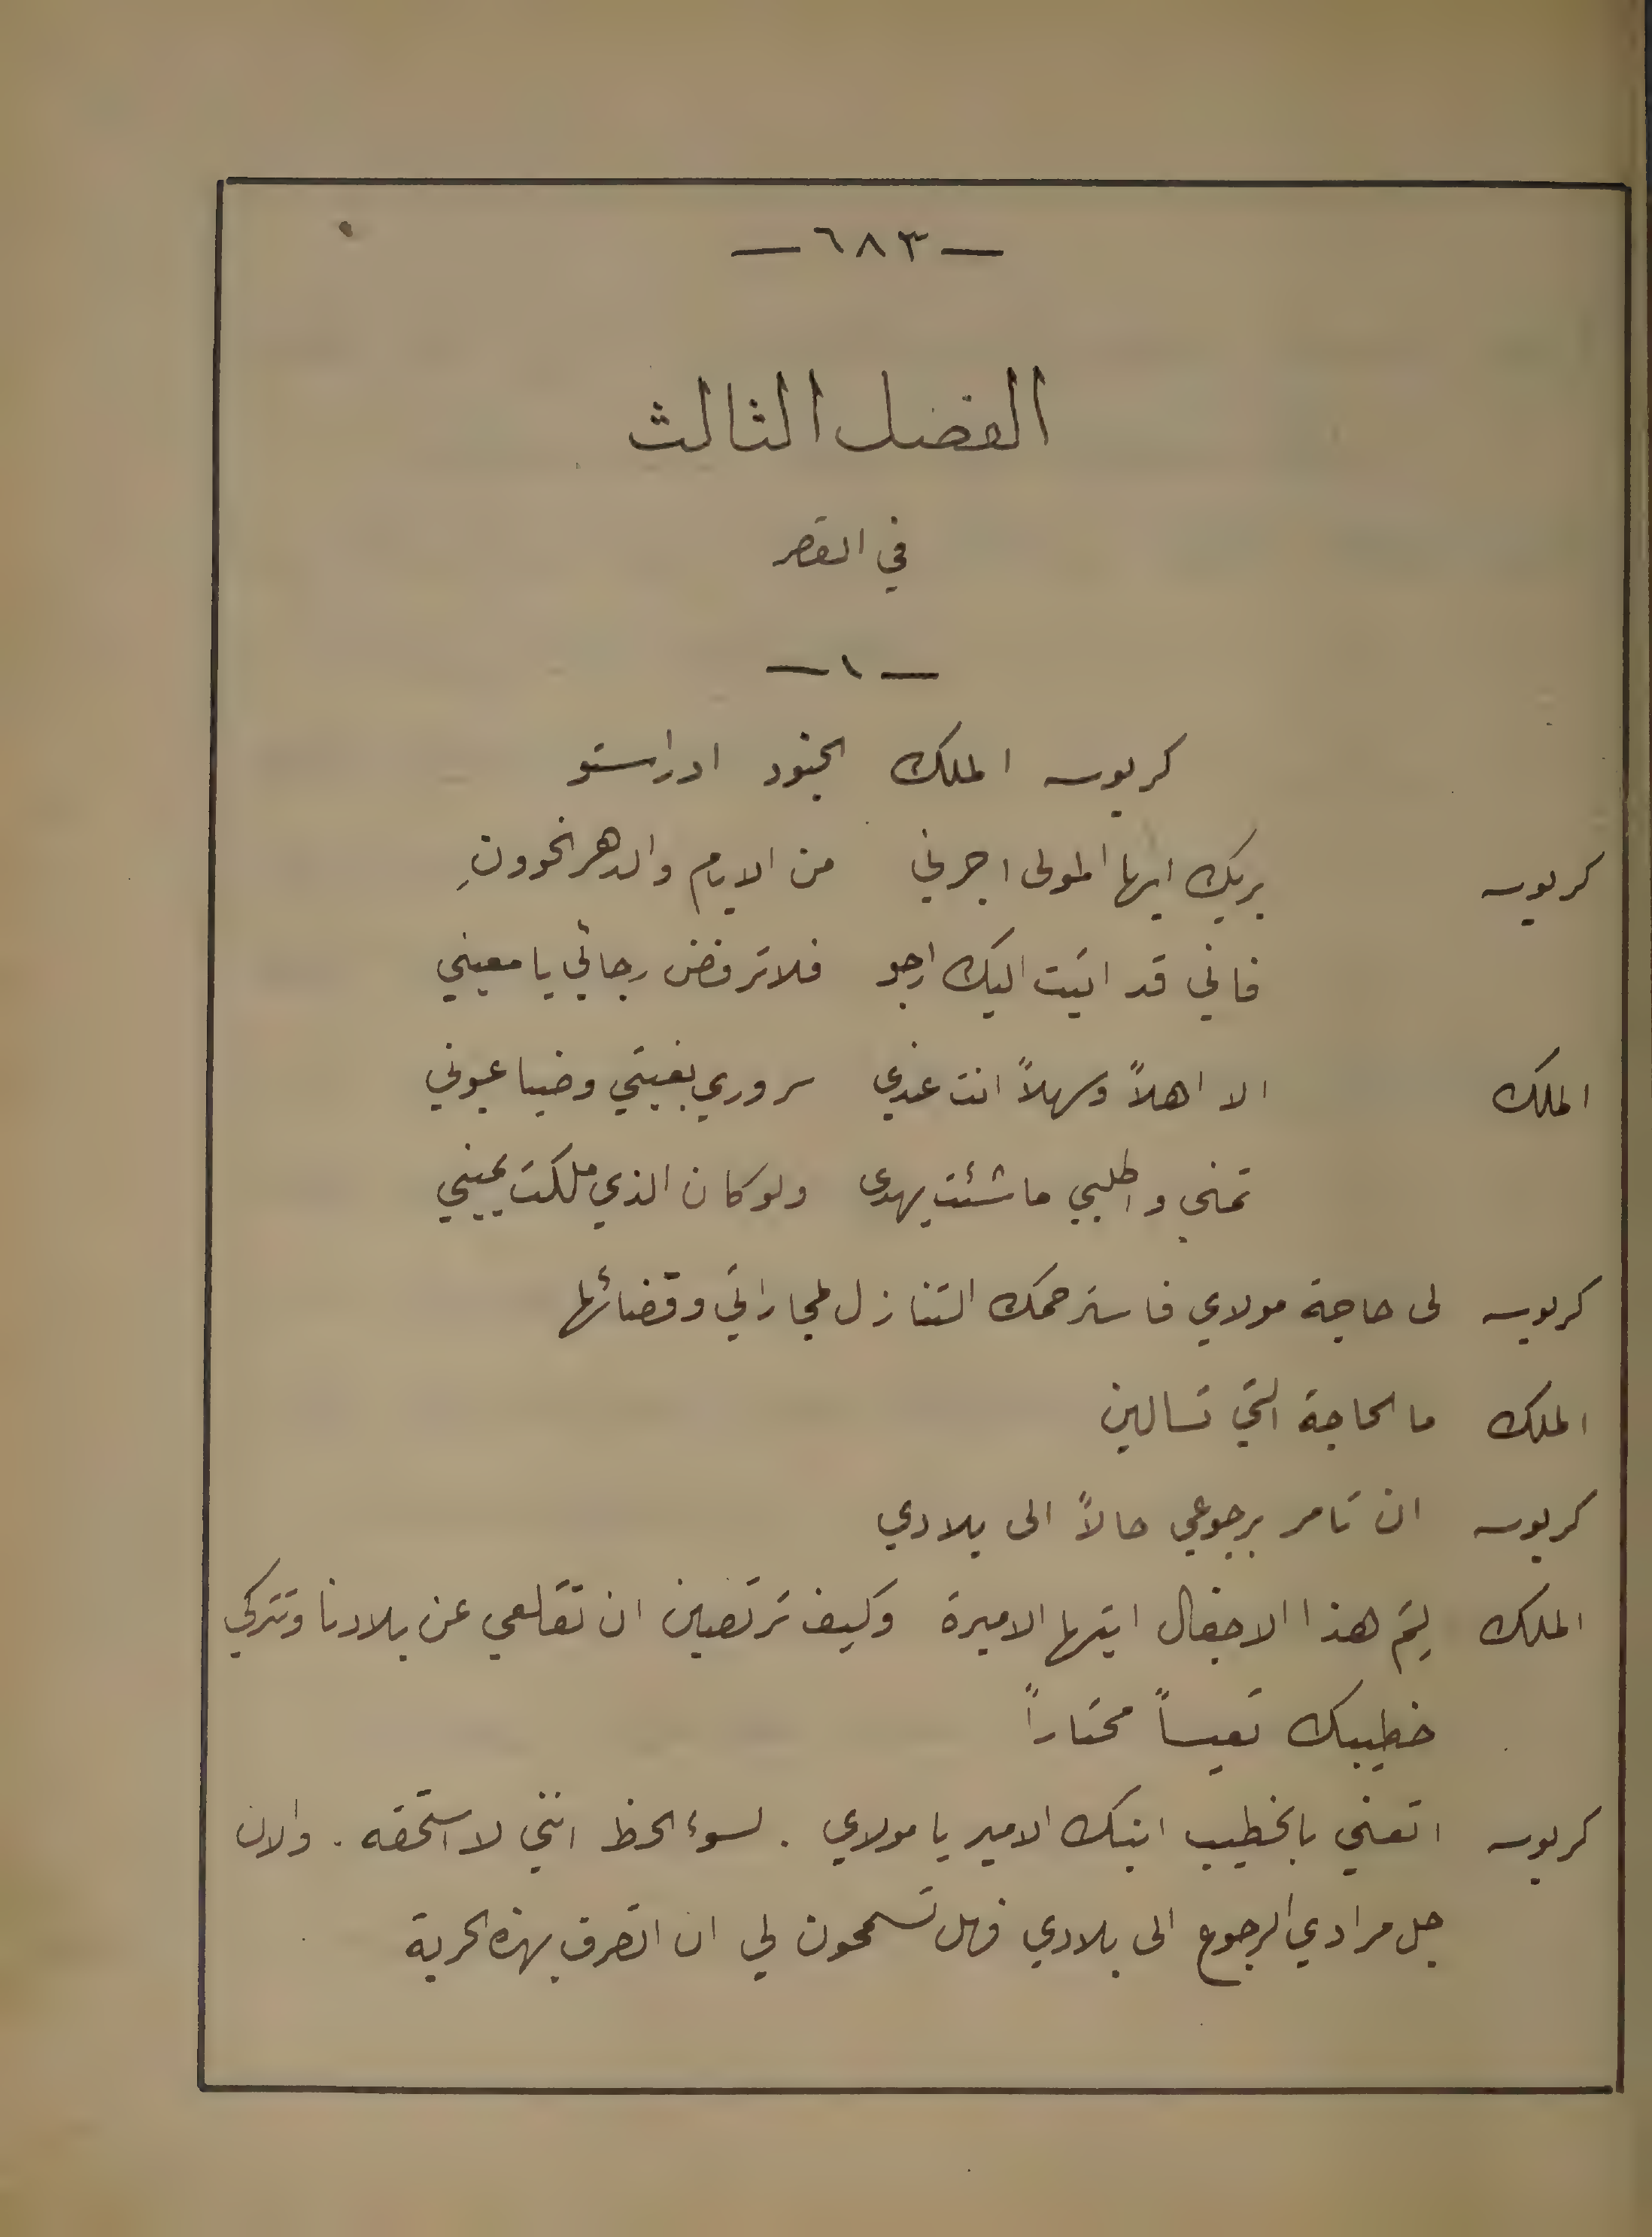 — ٦٨٣ —
الفصل الثالث
في القصر
— ١ —
كريوسه الملك الجنود ادراستو
كريوسه بربك ايها المولى اجرني من الايام والدهر الخوونِ
فاني قد اتيت اليك ارجو فلا ترفض رجائي يا معيني
الملك الا اهلاً وسهلاً انت عندي سروري بغيتي وضيا عيوني
تمني واطلبي ما شئت يهدى ولو كان الذي ملكت يميني
كريوسه لى حاجة مولاي فاسترحمك التنازل لمجاراتي وقضائها
الملك ما الحاجة التي تسالين
كريوسه ان تامر برجوعي حالاً الى بلادي
الملك لِمَ هذا الاجفال ايتها الاميرة وكيف ترتضين ان تقلعي عن بلادنا وتتركي
خطيبك تعيساً محتاراً
كريوسه اتعني بالخطيب ابنك الامير يا مولاي . لسوء الحظ انني لا استحقه . والان
جل مرادي الرجوع الى بلادي فهل تسمحون لي ان اتصرف بهذه الحرية